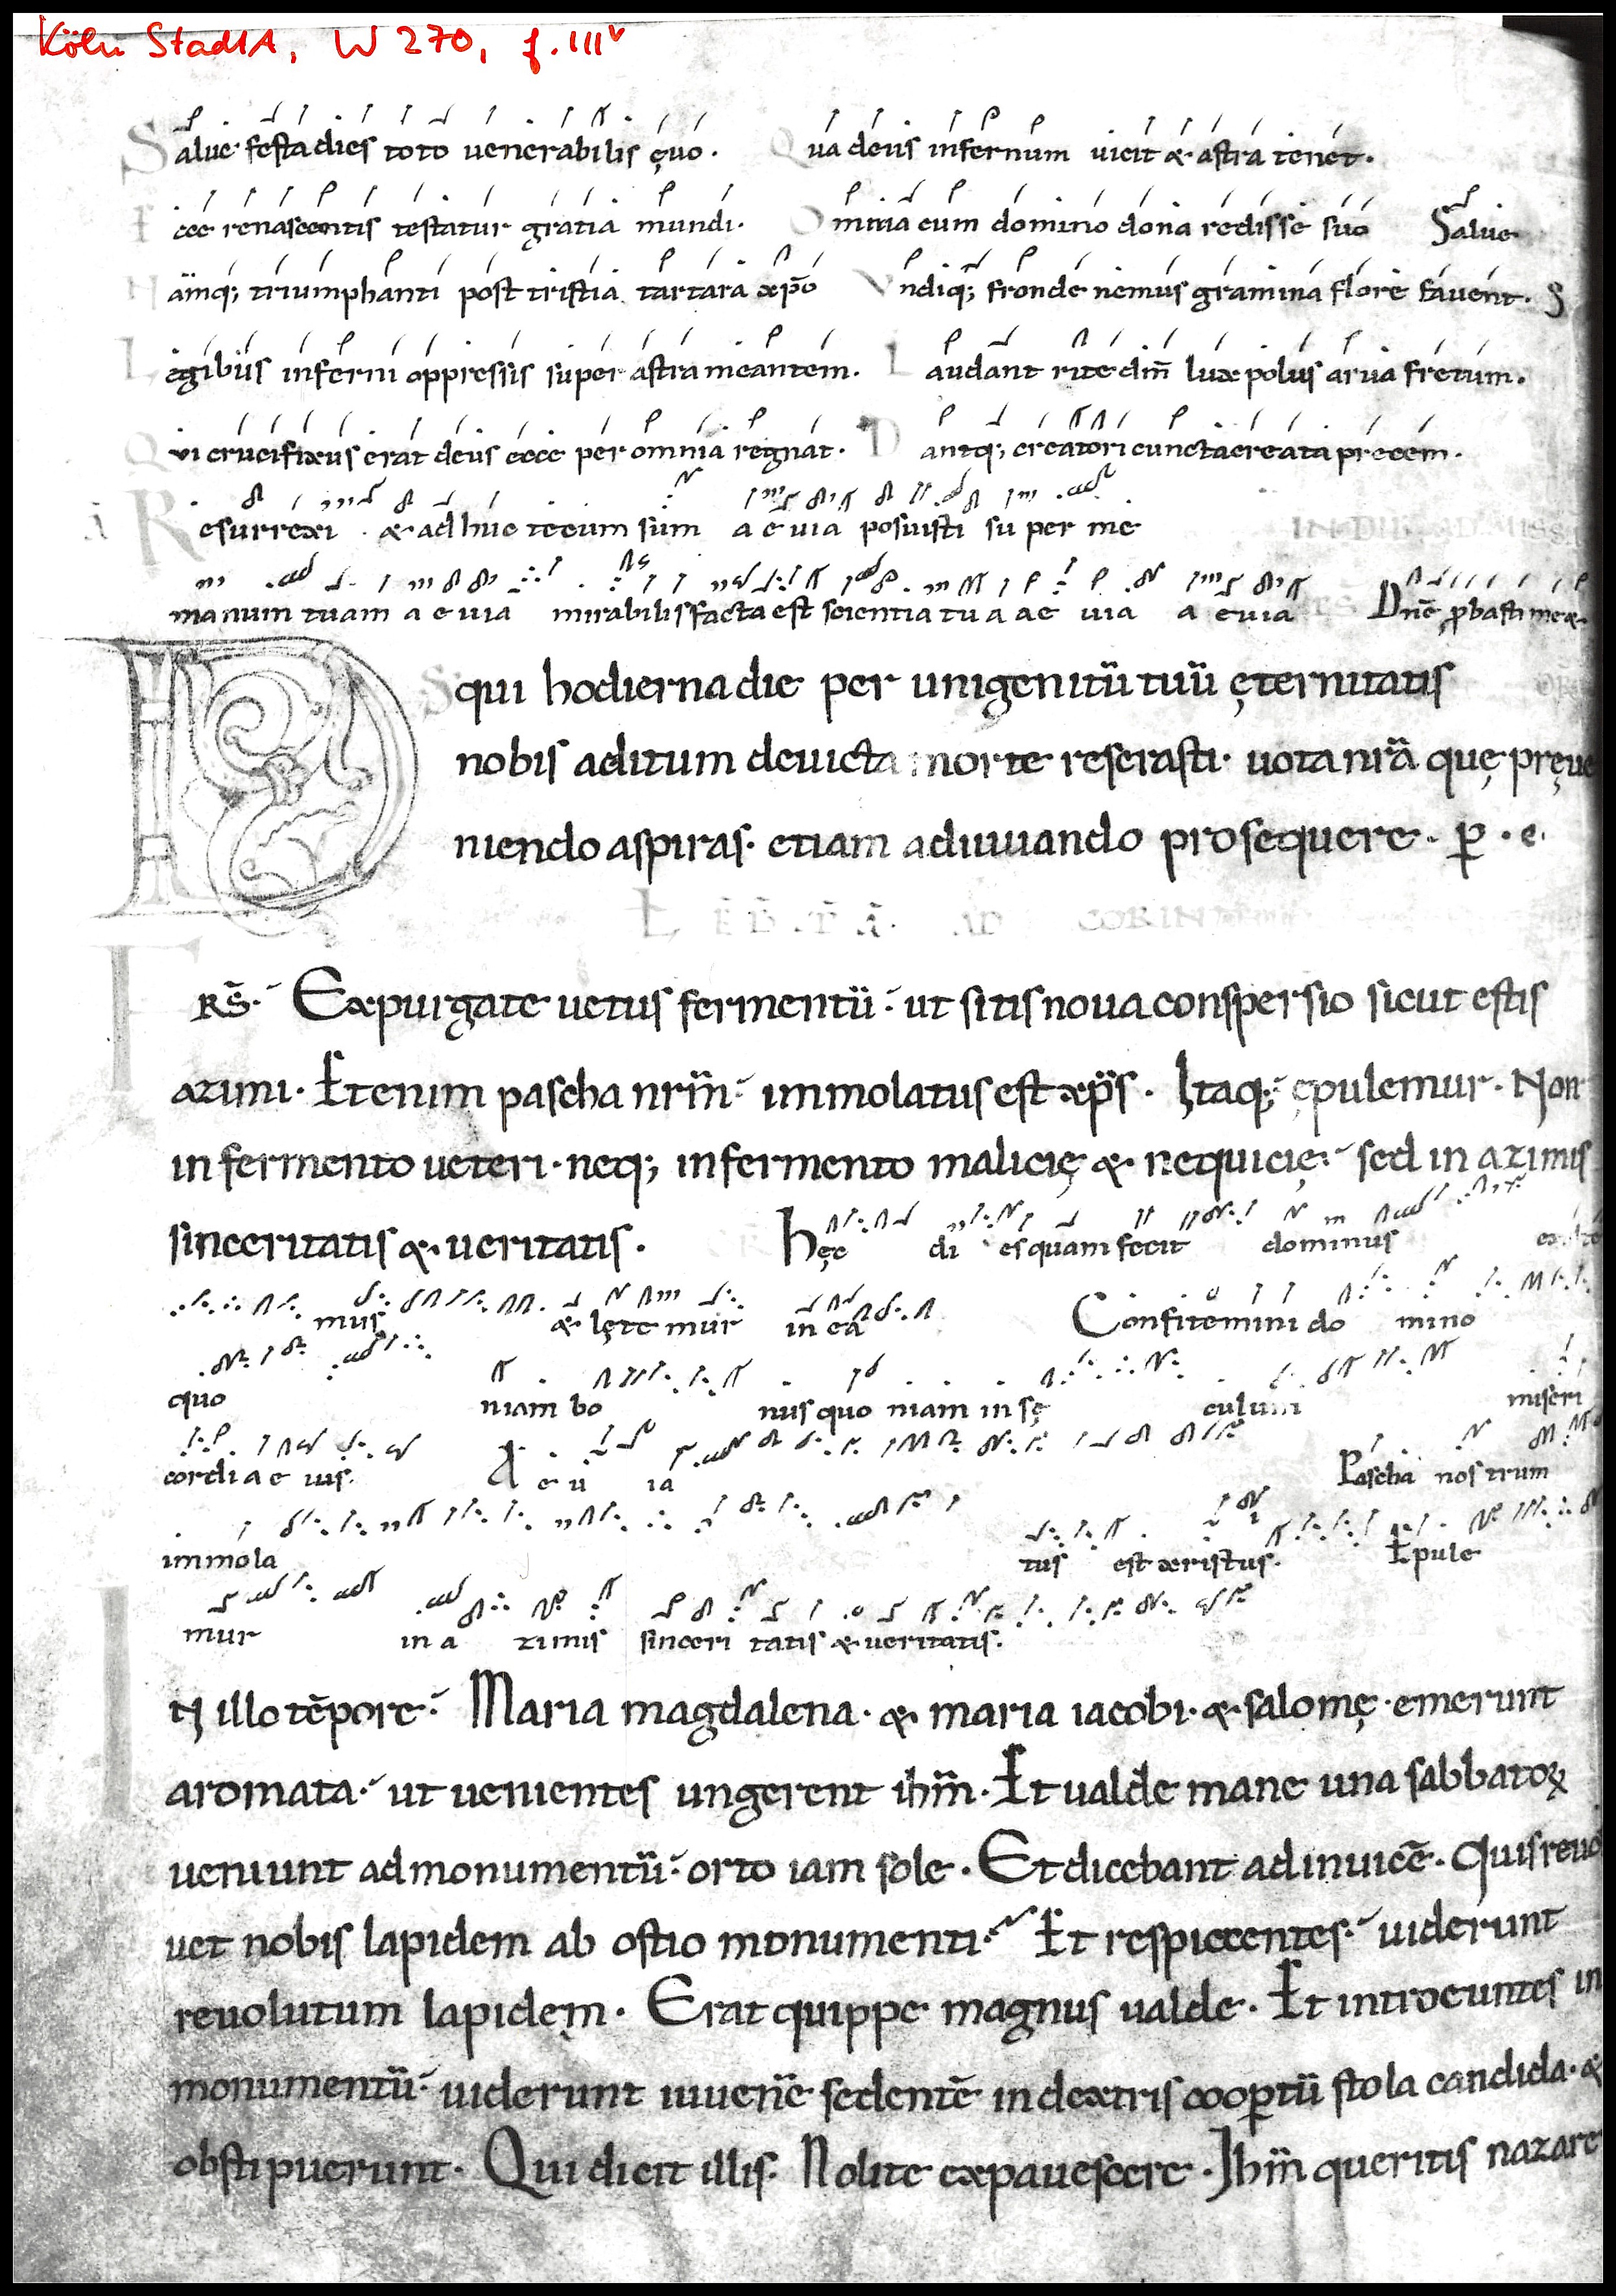 Köln StadtA, W 270, f. IIIv
Salue festa dies toto uenerabilis ęuo. Qua deus infernum uicit & astra tenet.
Ecce renascentis testatur gratia mundi. Omnia cum domino dona redisse suo Salue
Namq; triumphanti post tristia tartara xp̄o Vndiq; fronde nemus gramina flore fauent. S
Legibus inferni oppressis super astra meantem. Laudant rite dm̄ lux polus arua fretum.
Qui crucifixus erat deus ecce per omnia regnat. Dantq; creatori cuncta creata precem.
A Resurrexi & adhuc tecum sum aeuia posuisti super me IN DIE AD MISSA
manum tuam aeuia mirabilis facta est scientia tua aeuia aeuia Dn̄e ꝓbasti me &
D S qui hodierna die per unigenitū tuū ęternitatis
nobis aditum deuicta morte reserasti· uota nr̄a quę pręue
niendo aspiras· etiam adiuuando prosequere. p̄ . e.
L EP̄ B̄. P̄. Ā. AD CORIN
FRS̄. Expurgate uetus fermentū· ut sitis noua conspersio sicut estis
azimi. Etenim pascha nrm̄ immolatus est xp̄s. Itaq; ępulemur. Non
in fermento ueteri· neq; in fermento malicię & nequicię· sed in azimis
sinceritatis & ueritatis. Hęc dies quam fecit dominus exulte
mus & lętemur in ea Confitemini domino
quoniam bonus quoniam in sęculum miseri
cordia eius. Aeuia Pascha nostrum
immolatus est xristus. Epule
mur in azimis sinceritatis & ueritatis.
IN illo tēpore· Maria magdalena· & maria iacobi· & salomę· emerunt
aromata· ut uenientes ungerent ihm̄. Et ualde mane una sabbatoꝝ
ueniunt ad monumentū· orto iam sole. Et dicebant ad inuicē. Quis reuol
uet nobis lapidem ab ostio monumenti· Et respicientes· uiderunt
reuolutum lapidem. Erat quippe magnus ualde. Et introeuntes in
monumentū· uiderunt iuuenē sedentē in dextris coopertū stola candida· &
obstipuerunt. Qui dicit illis. Nolite expauescere. Ihm̄ queritis nazare